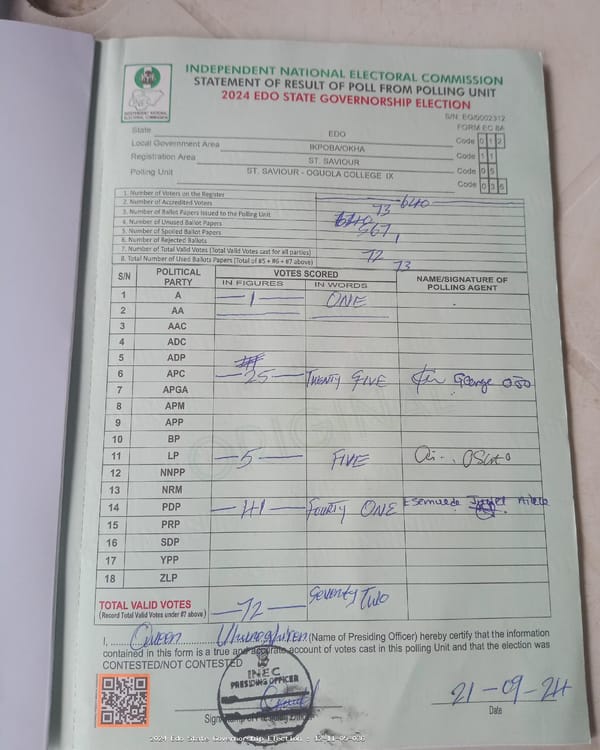 INDEPENDENT NATIONAL ELECTORAL COMMISSION
STATEMENT OF RESULT OF POLL FROM POLLING UNIT
2024 EDO STATE GOVERNORSHIP ELECTION
INEC
INDEPENDENT NATIONAL ELECTORAL COMMISSION
S/N: EG/0002312
FORM EC 8A
State EDO Code 0 1 2
Local Government Area IKPOBA/OKHA Code 1 1
Registration Area ST. SAVIOUR Code 0 5
Polling Unit ST. SAVIOUR - OGUOLA COLLEGE IX Code 0 3 6
1. Number of Voters on the Register 640
2. Number of Accredited Voters 73
3. Number of Ballot Papers Issued to the Polling Unit
4. Number of Unused Ballot Papers 567
5. Number of Spoiled Ballot Papers
6. Number of Rejected Ballots 1
7. Number of Total Valid Votes (Total Valid Votes cast for all parties) 72
8. Total Number of Used Ballots Papers (Total of #5 + #6 + #7 above) 73
S/N POLITICAL PARTY VOTES SCORED NAME/SIGNATURE OF POLLING AGENT
IN FIGURES IN WORDS
1 A 1 ONE
2 AA
3 AAC
4 ADC
5 ADP
6 APC 25 TWENTY FIVE George
7 APGA
8 APM
9 APP
10 BP
11 LP 5 FIVE
12 NNPP
13 NRM
14 PDP 41 FOURTY ONE
15 PRP
16 SDP
17 YPP
18 ZLP
TOTAL VALID VOTES 72 Seventy Two
(Record Total Valid Votes under #7 above)
I, Queen (Name of Presiding Officer) hereby certify that the information
contained in this form is a true and accurate account of votes cast in this polling Unit and that the election was
CONTESTED/NOT CONTESTED
INEC
PRESIDING OFFICER
21-09-24
Date
2024 Edo State Governorship Election - 12-11-05-036